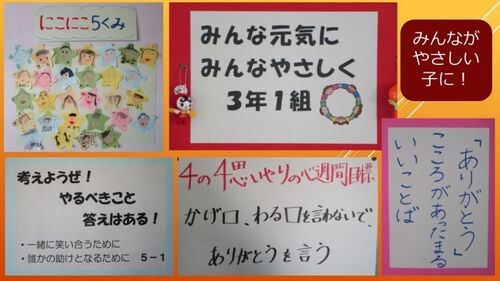 にこにこ5くみ
みんな元気に
みんなやさしく
3年1組
みんなが
やさしい
子に！
考えようぜ！
やるべきこと
答えはある！
・一緒に笑い合うために
・誰かの助けとなるために 5－1
4の4思いやりの心週間目標
かげ口、わる口を言わないで、
ありがとうを言う
「ありがとう」
こころがあったまる
いいことば